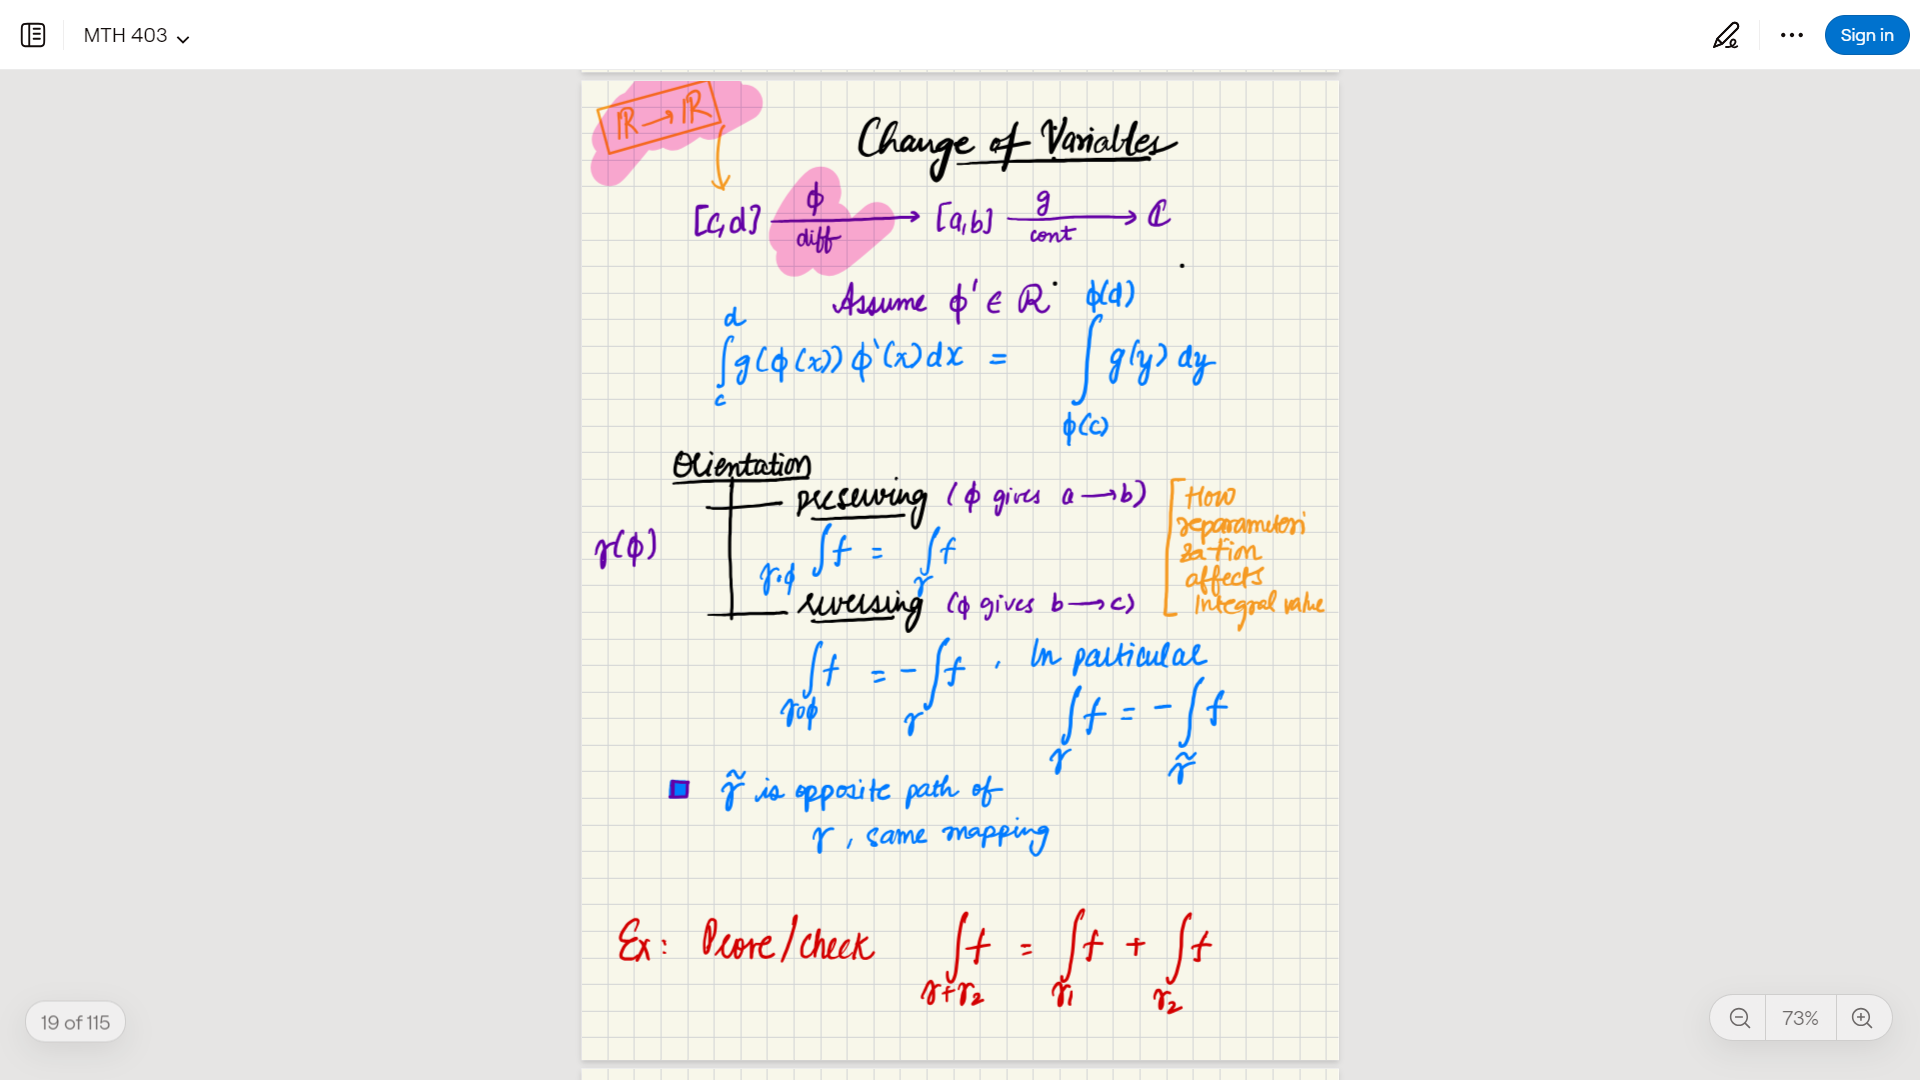 MTH 403
Sign in
ℝ → ℝ
Change of Variables
[c,d] —ϕ/diff→ [a,b] —g/cont→ ℂ
Assume ϕ' ∈ ℝ
∫_c^d g(ϕ(x)) ϕ'(x) dx = ∫_{ϕ(c)}^{ϕ(d)} g(y) dy
Orientation
preserving (ϕ gives a → b)
γ(ϕ)
∫_{γ∘ϕ} f = ∫_γ f
reversing (ϕ gives b → c)
[How
reparametori
zation
affects
Integral value
∫_{γ∘ϕ} f = - ∫_γ f , In particular
∫_γ f = - ∫_γ̃ f
γ̃ is opposite path of
γ, same mapping
Ex: Prove/check ∫_{γ+γ2} f = ∫_{γ1} f + ∫_{γ2} f
19 of 115
73%